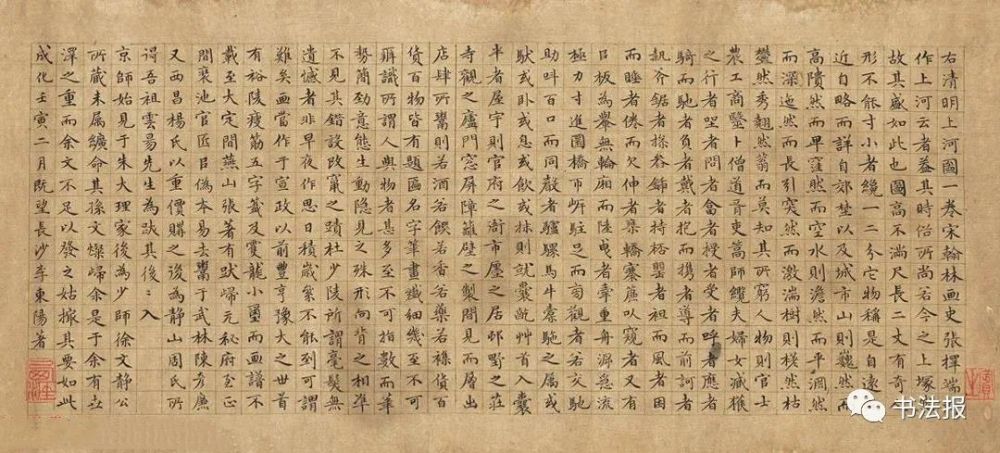 右清明上河圖一卷宋翰林画史張擇端所
作上河云者蓋其時俗所尚若今之上塚然
故其盛如此也圖高不滿尺長二丈有奇人
形不能寸小者纔一二分它物稱是自遠而
近自略而詳自郊埜以及城市山則巍然而
高隤然而卑窪然而空水則澹然而平淵然
而深迤然而長引突然而激湍樹則槎然枯
欝然秀翹然蓊而莫知其所窮人物則官士
農工商醫卜僧道胥吏篙師纜夫婦女臧獲
之行者坐者問者答者授者受者呼者應者
騎而馳者負者戴者抱而攜者導而前訶者
執斧鋸者操畚鍤者持桮罌者袒而風者困
而睡者倦而欠伸者乘轎搴簾以窺者又有
以板為轝無輪廂而陸曳者牽重舟溯急流
極力寸進圜橋帀岸駐足而旁觀者若交
助叫百口而同散者驢騾馬牛橐駞之屬或
馱或臥或息或飲或秣則就囊齕艸首入囊
半者屋宇則官府之衙市廛之居邨野之莊
寺觀之廬門窓屏障籬壁之製間見而層出
店肆所鬻則若酒若饌若香若藥若雜貨百
貨百物皆有題匾名字筆畫纖細幾至不可
辨識所謂人與物者甚多至不可指數而筆
勢簡勁意態生動隱見之殊形向背之相凖
不見其錯設改竄之蹟杜少陵所謂毫髮無
遺憾者非早夜作思日積歲絫不能到可謂
難矣画當作于宣政以前豐亨豫大之世首
有裕陵瘦筋五字籖及雙龍小璽而画譜不
載至大定間燕山張著有跋歸元秘府至正
間裒池官匠以偽本易去鬻于武林陳彥廉
又西昌楊氏以重價購之後為靜山周氏所
得吾祖雲昜先生為跋其後〻入
京師始見于朱大理家後為少師徐文靖公
所藏未屬纊命其孫文燦歸余是于余有世
澤之重而余文不足以發之姑撮其要如此
成化壬寅二月既望長沙李東陽著
书法报